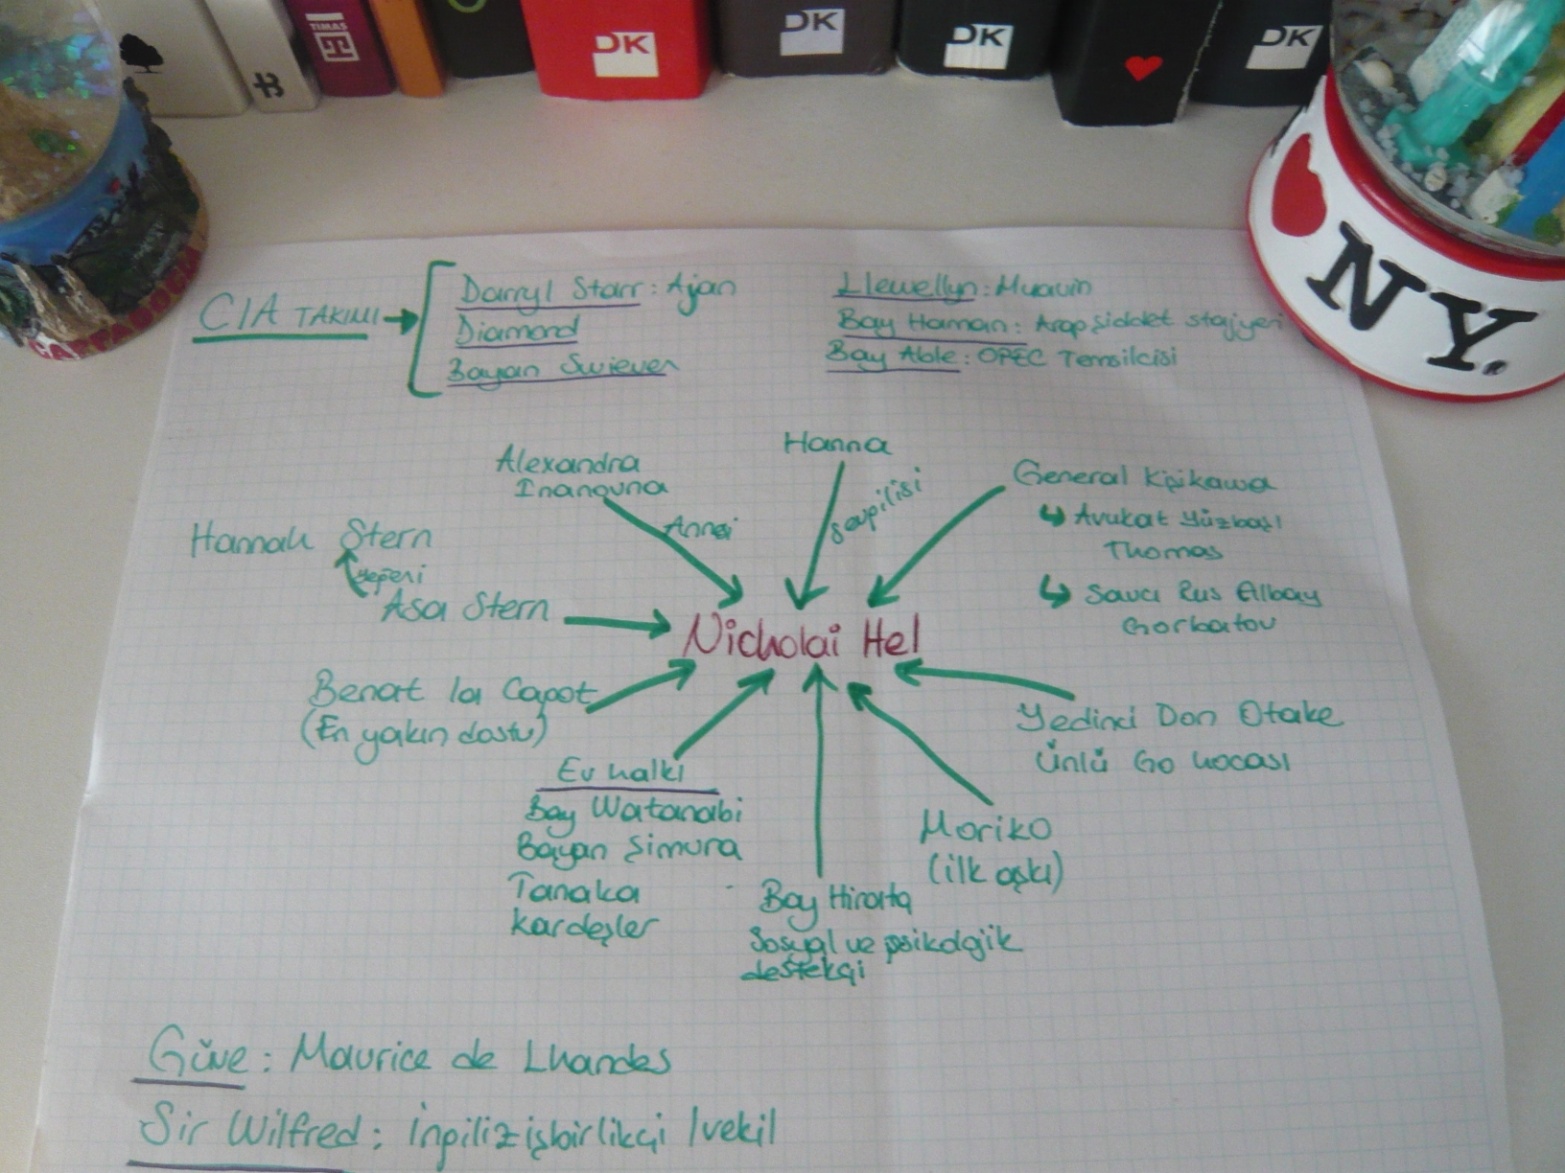 TIMAŞ
DK
DK
DK
DK
NY.
CIA TAKIMI
Darryl Starr: Ajan
Diamond
Bayan Swieven
Llewellyn: Muavin
Bay Haman: Arap şiddet stajyeri
Bay Able: OPEC Temsilcisi
Alexandra
Inanovna
Annesi
Hanna
sevgilisi
General Kişikawa
Avukat Yüzbaşı
Thomas
Savcı Rus Albay
Gorbatov
Hannah Stern
yeğeni
Asa Stern
Nicholai Hel
Benat la Capot
(En yakın dostu)
Yedinci Dan Otake
Ünlü Go hocası
Ev halkı
Bay Watanabi
Bayan Şimura
Tanaka
kardeşler
Moriko
(ilk aşkı)
Bay Hirata
Sosyal ve psikolojik
destekçi
Güve: Maurice de Lhandes
Sir Wilfred: İngiliz işbirlikçi /vekil